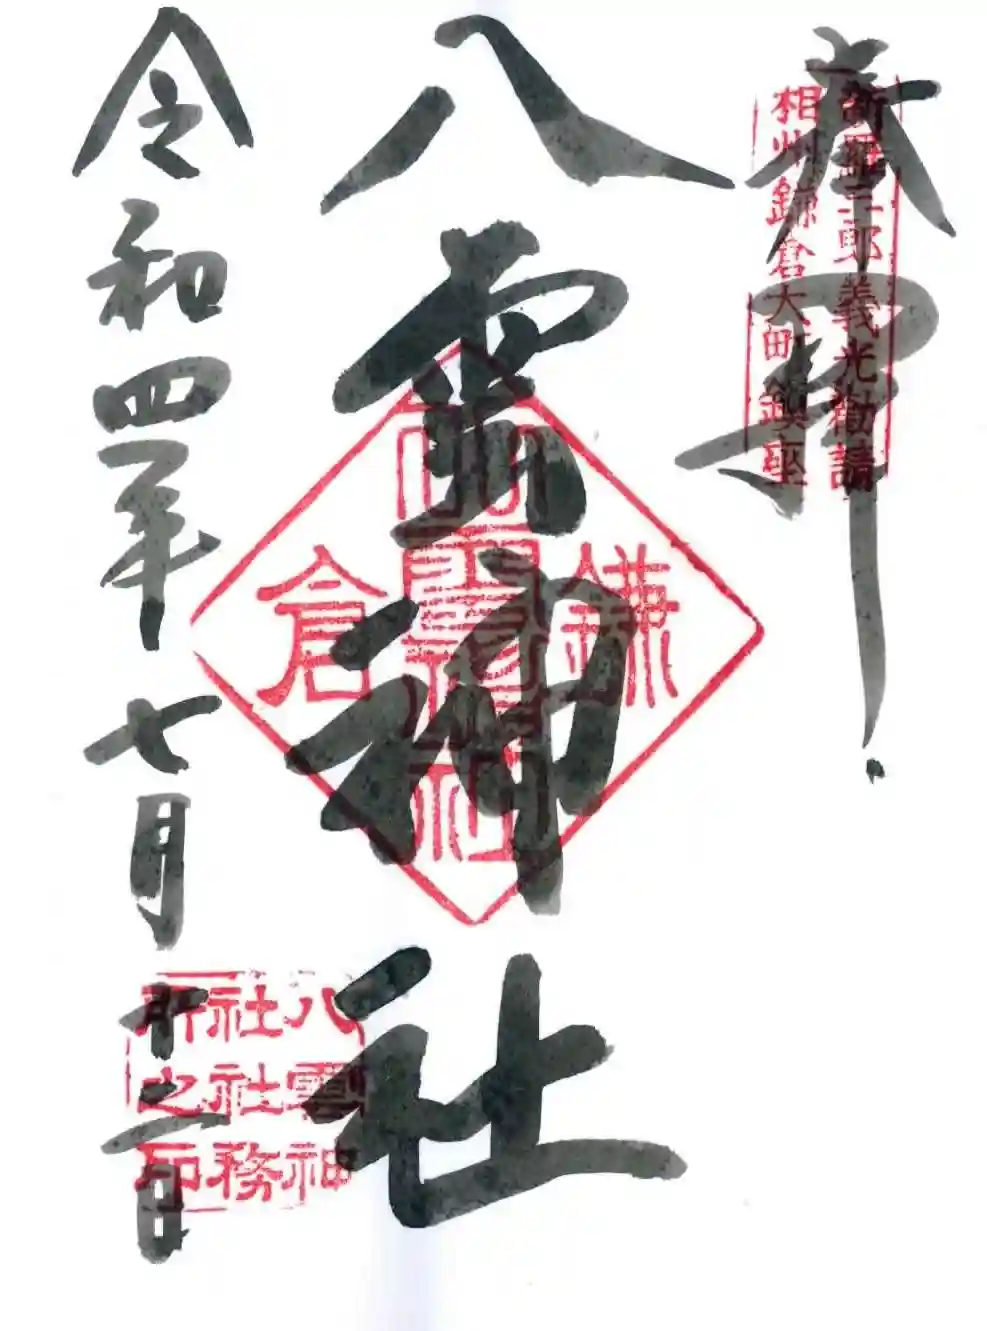 奉拝
新羅三郎義光勧請
相州鎌倉大町鎮座
八雲神社
鎌倉
八雲神社
令和四年七月十二日
八雲神
社社務
所之印